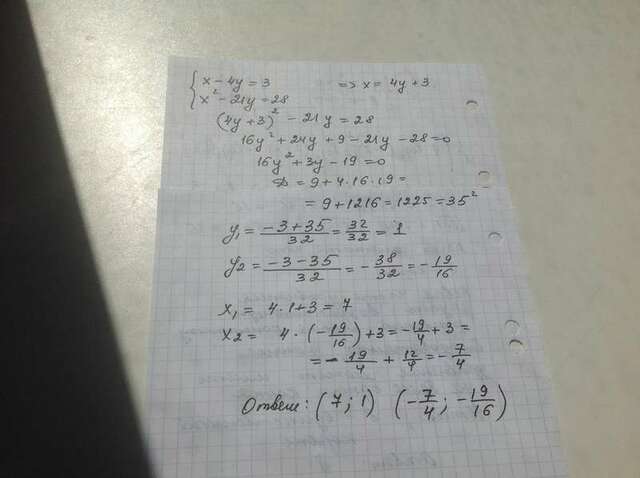 { x - 4y = 3 => x = 4y + 3
x² - 21y = 28
(4y + 3)² - 21y = 28
16y² + 24y + 9 - 21y - 28 = 0
16y² + 3y - 19 = 0
D = 9 + 4·16·19 =
= 9 + 1216 = 1225 = 35²
y₁ = (-3+35)/32 = 32/32 = 1
y₂ = (-3-35)/32 = -38/32 = -19/16
x₁ = 4·1+3 = 7
x₂ = 4·(-19/16) + 3 = -19/4 + 3 =
= -19/4 + 12/4 = -7/4
Ответ: (7; 1) (-7/4; -19/16)